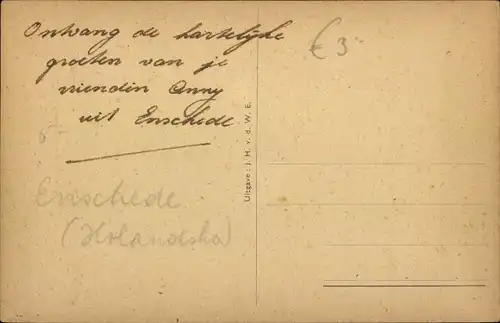 Ontvang de hartelijke
groeten van je
vriendin Anny
uit Enschede
Enschede
(Holandsko)
€ 3
Uitgave: J. H. v. d. W. E.